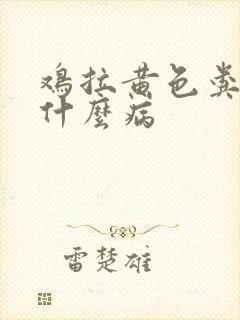 鸡拉黄色粪
什麼病
雷楚雄